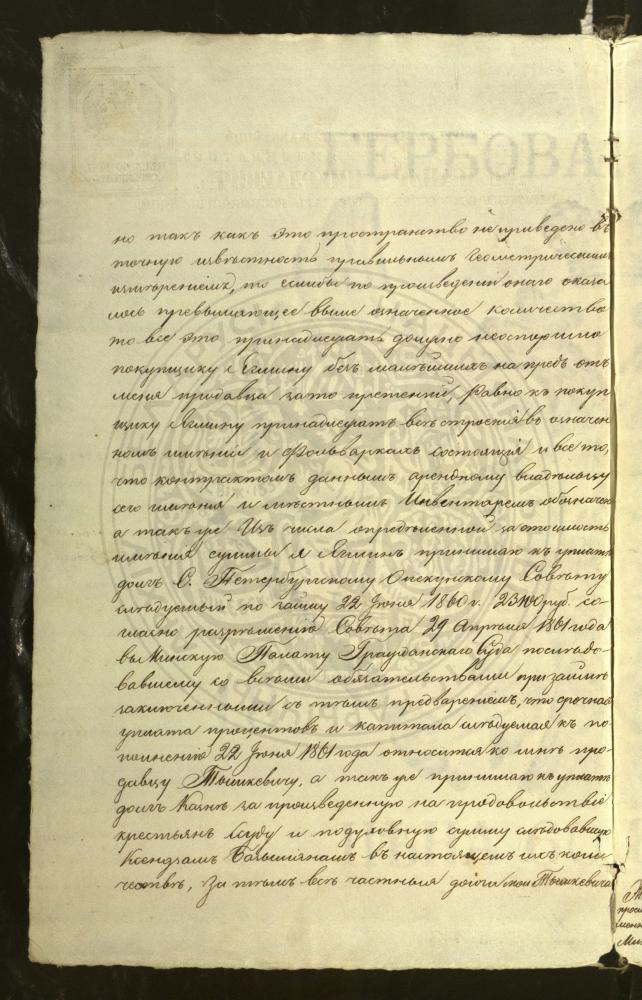 ГЕРБОВА
но такъ какъ это пространство не приведено въ
точную извѣстность правильнымъ Геометрическимъ
измѣреніемъ, то еслибы по произведеніи онаго оказа
лось превышающее выше означенное количество
то все это принадлежать должно неоспоримо
покупщику Ягмину безъ малѣйшихъ на предъ отъ
меня продавца за то претензій, равно къ покуп
щику Ягмину принадлежатъ всѣ строенія въ означен
номъ имѣніи и Фольваркахъ состоящія и все то,
что контрактомъ даннымъ арендному владѣльцу
сего имѣнія и мѣстнымъ Инвентаремъ обозначено
а такъ же Изъ числа опредѣленной за стоимость
имѣнія суммы я Ягминъ принимаю къ уплатѣ
долгъ С. Петербургскому Опекунскому Совѣту
слѣдуемый по займу 22 Іюня 1860 г. 23100 руб. со-
гласно разрѣшенію Совѣта 29 Апрѣля 1861 года
въ Минскую Палату Гражданскаго Суда послѣдо-
вавшему со всѣми обязательствами при займѣ
заключенными съ тѣмъ предвареніемъ, что срочная
уплата процентовъ и капитала слѣдуемая къ по
полненію 22 Іюня 1861 года относится ко мнѣ про-
давцу Тышкевичу, а такъ же принимаю къ уплатѣ
долгъ Казнѣ за произведенную на продовольствіе
крестьянъ ссуду и подуховную сумму слѣдовавшую
Ксендзамъ Базыліянамъ въ настоящемъ ихъ коли
чествѣ, За тѣмъ всѣ частныя долги мои Тышкевича